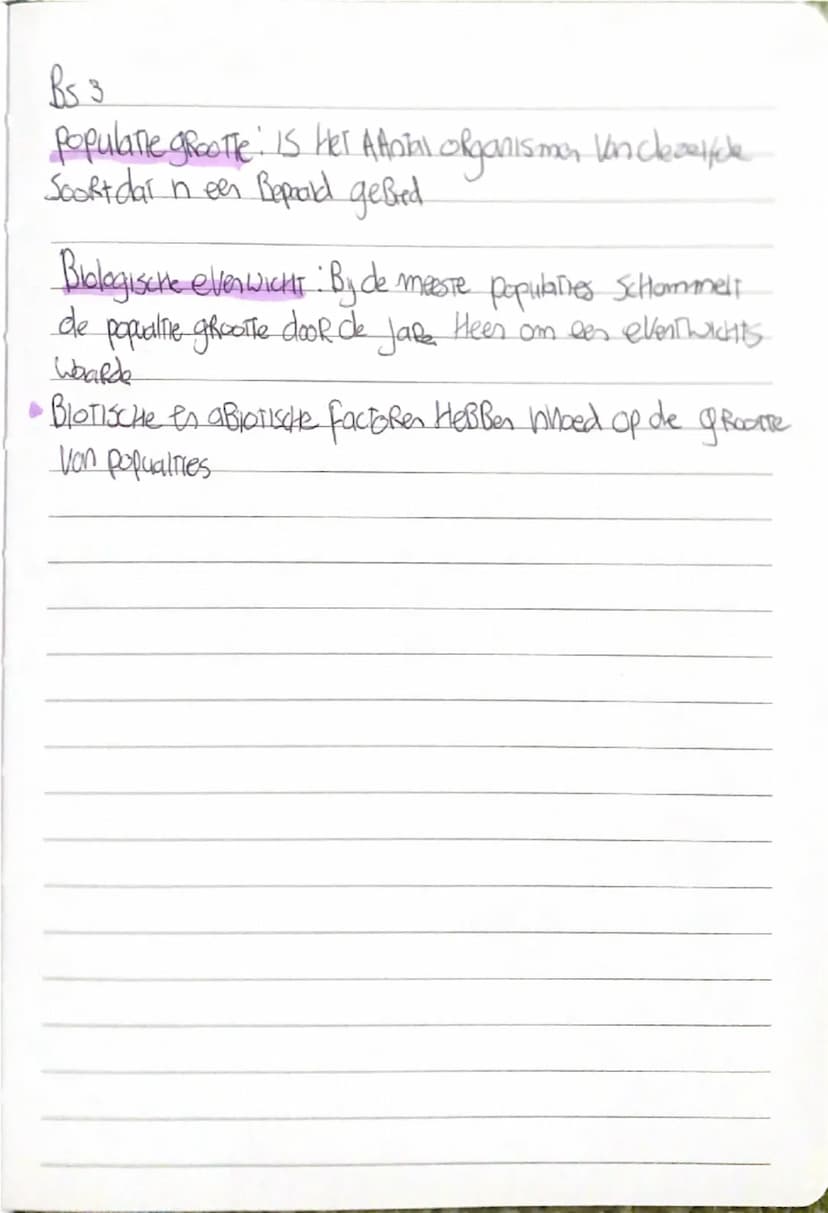 Bs 3
populatie grootte: is Het AAntal organismen Van dezelfde
Soort dat in een Bepaald geBied
Biologische evenwicht: Bij de meeste populaties Schommelt
de popualtie grootte door de jare Heen om een evenwichts
waarde
Biotische en aBiotische factoren HeBBen invloed op de grootte
Van popualties